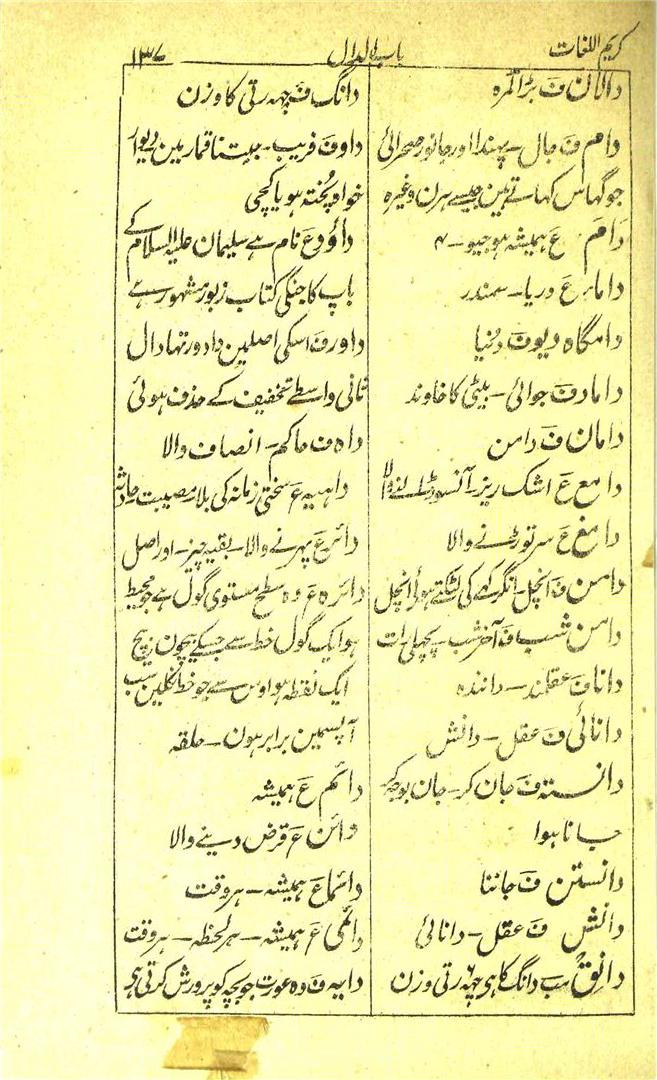 کریم اللغات باب الدال ١٣٧
دالان ف بڑا کمرہ
دام ف جال - پھندا اور جانور صحرائی
جو گھاس کھاتے ہین جیسے ہرن وغیرہ
دَامَ ع ہمیشہ ہوجیو - ۴
داما ع دریا - سمندر
دامگاہ دیو ف دنیا
داماد ف جوائی - بیٹی کا خاوند
دامان ف دامن
دامع ع اشک ریز - آنسو
دامغ ع سر توڑنے والا
دامن ف آنچل - انگرکھے کی لٹکتے ہوئی آنچل
دامن شب ف آخر شب - پچھلی رات
دانا ف عقلمند - دانندہ
دانائی ف عقل - دانش
دانستہ ف جان کر - جان بوجھ کر
جانا ہوا
دانستن ف جاننا
دانش ف عقل - دانائی
دانق مب دانگ کا ہی چھہ رتی وزن
دانگ ف چھہ رتی کا وزن
داو ف فریب - جیتنا قمار مین دیوار
خواہ پختہ ہو یا کچی
داؤد ع نام ہے سلیمان علیہ السلام کے
باپ کا جنکی کتاب زبور مشہور ہے
داور ف اسکی اصلمین دادور تہا دال
ثانی واسطے تخفیف کے حذف ہوئی
داہ ف حاکم - انصاف والا
داہیہ ع سختی زمانہ کی بلا - مصیبت حادثہ
دائر ع پہرنے والا - بقیہ چیز - اور اصل
دائرہ ع وہ سطح مستوی گول ہے جو محیط
ہو ایک گول خط سے جسکے بیچون بیچ
ایک نقطہ ہو اوس سے جو خط نکلین سب
آپسمین برابر ہون - حلقہ
دائم ع ہمیشہ
دائن ع قرض دینے والا
دائما ع ہمیشہ - ہر وقت
دائمی ع ہمیشہ - ہر لحظہ - ہر وقت
دایہ ف وہ عورت جو بچہ کو پرورش کرتی ہی